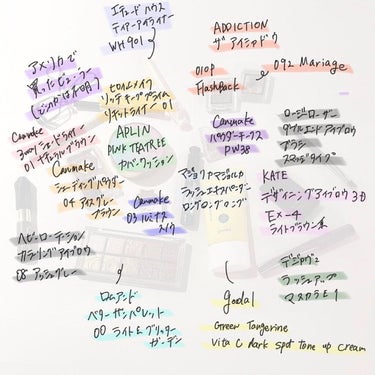 エチュードハウス
ティアーアイライナー
WH901
ADDICTION
ザ アイシャドウ
010P
Flashback
092 Mariage
アメリカで
買ったビューラー
ヒロインメイク
リッチキープライム
リキッドライナー 01
APLIN
PINK TEATREE
カバークッション
Canmake
3wayシェードライナー
01 ナチュラルブラウン
Canmake
シェーディングパウダー
04 アイスグレー
ブラウン
Canmake
03 ルミナス
スノウ
Canmake
パウダーチークス
PW38
ロージーローザ
ダブルエンドアイブロウ
ブラシ
スマッジタイプ
マジョリカマジョルカ
ラッシュエキスパンダー
ロングロングロング
KATE
デザイニングアイブロウ3D
EX-4
ライトブラウン系
ヘビーローテーション
カラーリングアイブロウ
08 アッシュグレー
デジャヴュ
ラッシュアップ
マスカラE1
ロムアンド
ベターザンパレット
00 ライト&グリッター
ガーデン
goodal
Green Tangerine
Vita C dark spot tone up cream